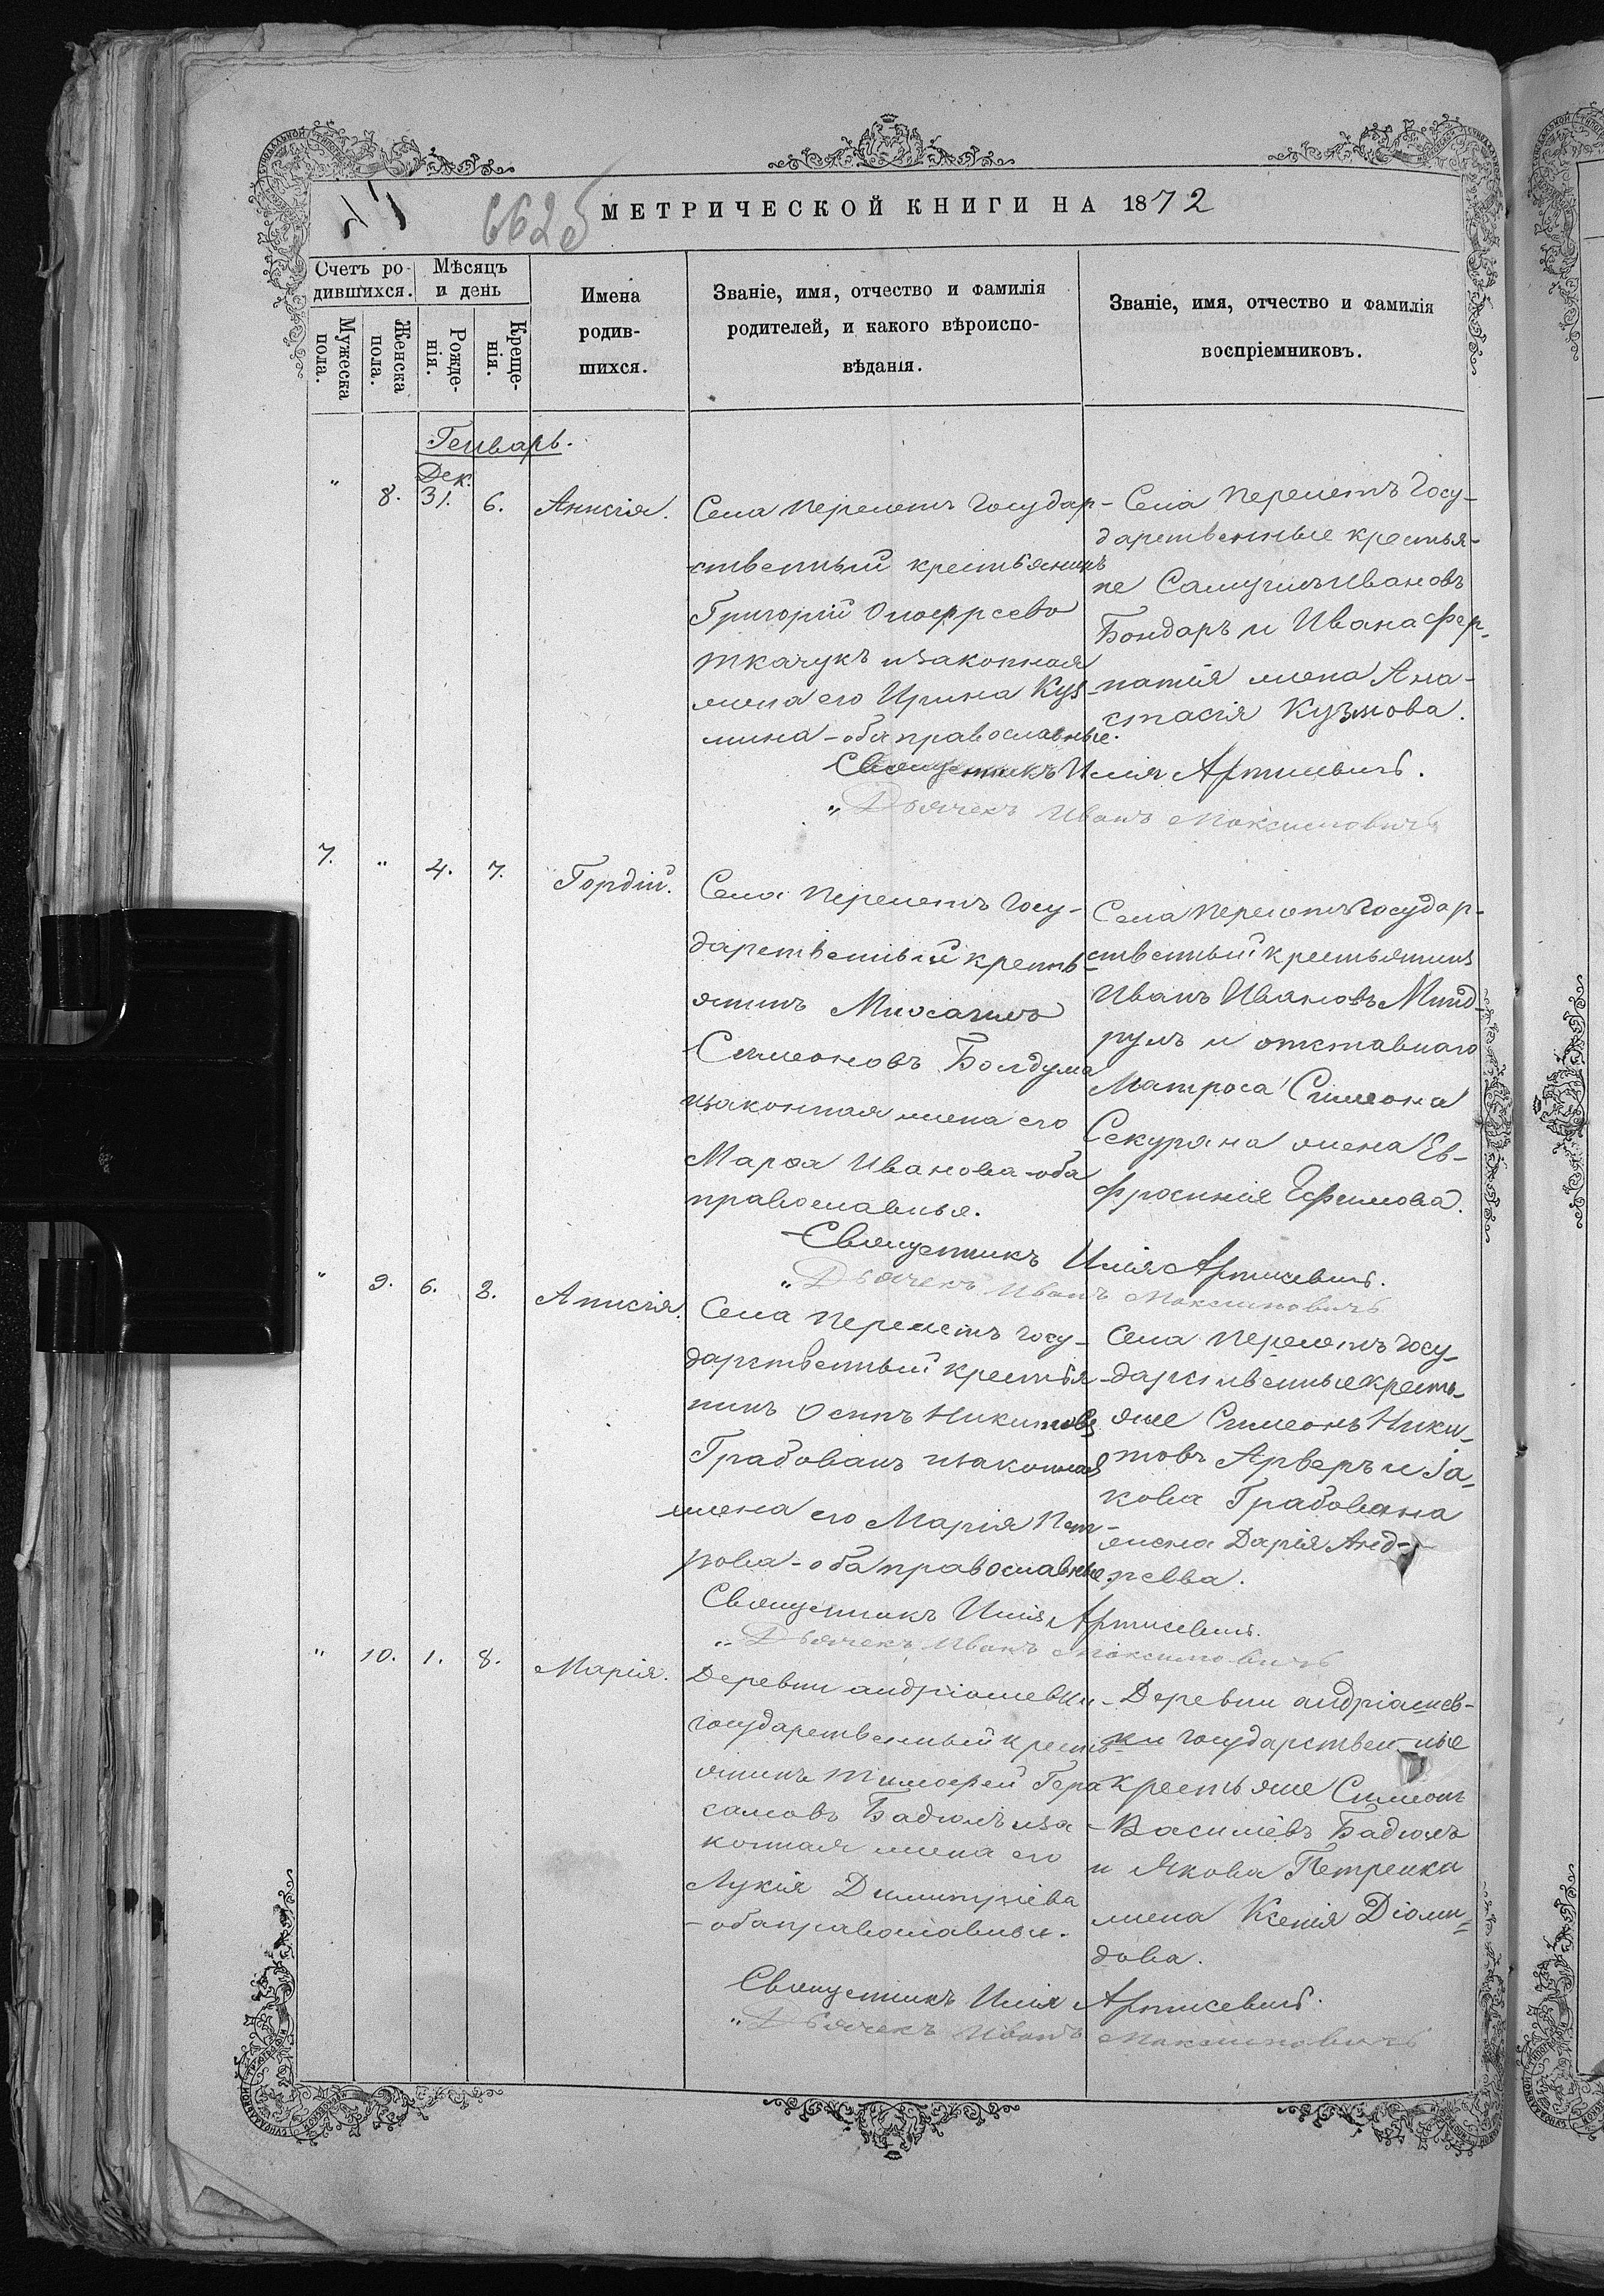 662б
МЕТРИЧЕСКОЙ КНИГИ НА 1872
Счетъ ро-
дившихся.
Мѣсяцъ
и день
Мужеска
пола.
Женска
пола.
Рожде-
нія.
Креще-
нія.
Имена
родив-
шихся.
Званіе, имя, отчество и фамилія
родителей, и какого вѣроиспо-
вѣданія.
Званіе, имя, отчество и фамилія
воспріемниковъ.
Генварь.
Дек.
" 8. 31. 6. Анисія.
Села Перелетъ Государ-
ственный крестьянинъ
Григорій Онофреевъ
Ткачукъ и законная
жена его Ирина Куз-
мина - оба православные.
Села Перелетъ Госу-
дарственные крестья-
не Самуилъ Ивановъ
Бондаръ и Ивана
жена Ана-
стасія Кузмова.
Священникъ Илія Артисевичъ.
" Дьячекъ Иванъ Максимовичъ
7. " 4. 7. Гордій.
Села Перелетъ Госу-
дарственный кресть-
янинъ
Симеоновъ Болдума
и законная жена его
Марѳа Иванова - оба
православные.
Села Перелетъ Государ-
ственный крестьянинъ
Иванъ Ивановъ Минд-
рулъ и отставнаго
Матроса Симеона
Секуряна жена Ев-
фросинія Ефимова.
Священникъ Илія Артисевичъ.
" Дьячекъ Иванъ Максимовичъ
" 9. 6. 8. Анисія.
Села Перелетъ Госу-
дарственный крестья-
нинъ Осипъ Никитовъ
Грабованъ и законная
жена его Марія Пет-
рова - оба православные.
Села Перелетъ Госу-
дарственные кресть-
яне Симеонъ Ники-
товъ Арверъ и Іа-
кова Грабована
жена Дарія Анд-
реева.
Священникъ Илія Артисевичъ.
" Дьячекъ Иванъ Максимовичъ
" 10. 1. 8. Марія.
Деревни Андріяшевки
государственный кресть-
янинъ Тимофей Гера-
симовъ Бадюлъ и за-
конная жена его
Лукія Димитріева
- оба православные.
Деревни Андріяшев-
ки государственные
крестьяне Симеонъ
Василіевъ Бадюлъ
и Якова Петренка
жена Ксенія Діоми-
дова.
Священникъ Илія Артисевичъ.
" Дьячекъ Иванъ Максимовичъ